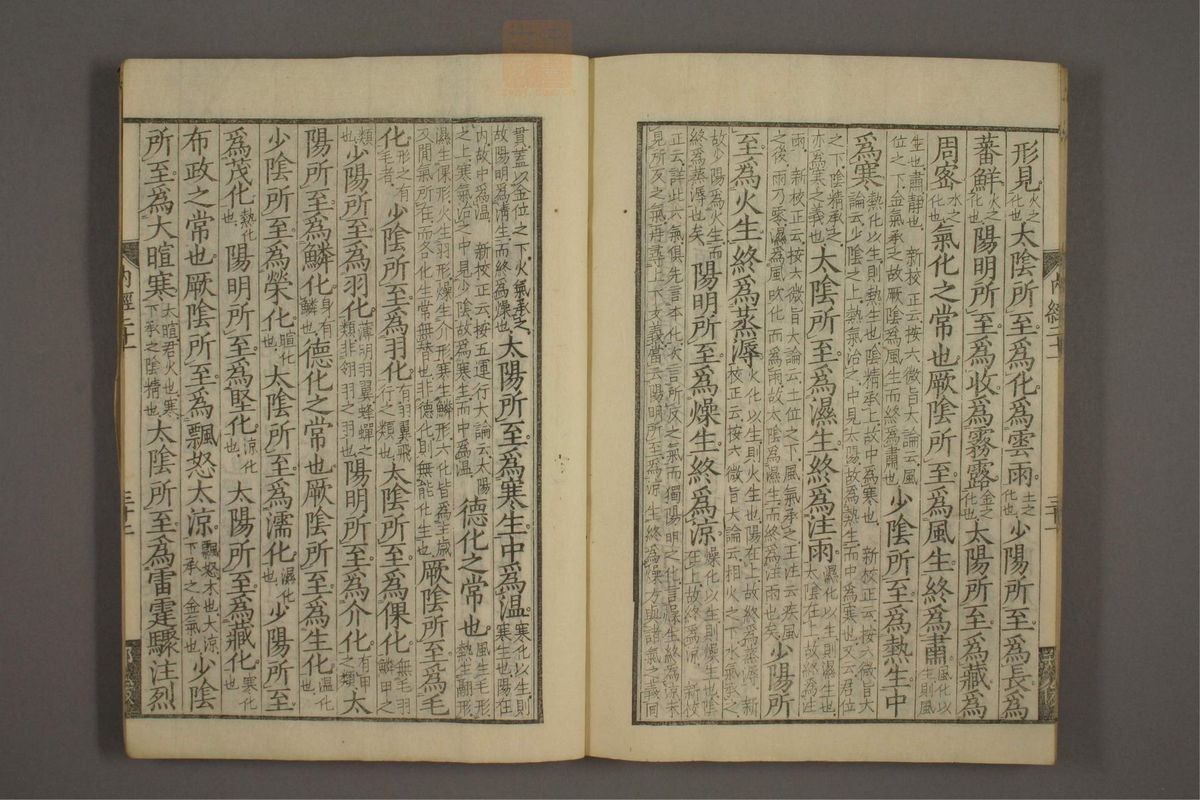 形見火之化也太陰所至爲化爲雲雨土之化也少陽所至爲長爲
蕃鮮火之化也陽明所至爲收爲霧露金之化也太陽所至爲藏爲
周密水之化也氣化之常也厥陰所至爲風生終爲肅風化以生則風
生也肅靜也新校正云按六微旨大論云風位之下金氣承之故厥陰爲風生而終爲肅也少陰所至爲熱生中
爲寒熱化以生則熱生也陰精承上故中爲寒也新校正云按六微旨大論云少陰之上熱氣治之中見太陽故爲熱生而中爲寒也又云君位
之下陰精承之亦爲寒之義也太陰所至爲濕生終爲注雨濕化以生則濕生也太陰在上故終爲注
雨新校正云按六微旨大論云土位之下風氣承之王注云疾風之後雨乃零濕爲風吹化而爲雨故太陰爲濕生而終爲注雨也少陽所
至爲火生終爲蒸溽火化以生則火生也陽在上故終爲蒸溽新校正云按六微旨大論云相火之下水氣承之
故少陽爲火生而終爲蒸溽也陽明所至爲燥生終爲涼燥化以生則燥生也陰在上故終爲涼新校
正云詳此六氣俱先言本化次言所反之氣而獨陽明之化言燥生終爲涼未見所反之氣再尋上下文義當云陽明所至爲涼生終爲燥方與諸氣之義同
内經二十一
三十一
貫蓋以金位之下火氣承之故陽明爲清生而終爲燥也太陽所至爲寒生中爲温寒化以生則寒生也陽在
内故中爲温新校正云按五運行大論云太陽之上寒氣治之中見少陰故爲寒生而中爲温德化之常也風生毛形熱生翮形
濕生倮形火生羽形燥生介形寒生鱗形六化皆爲主歲及間氣所在而各化生常無替也非德化則無能化生也厥陰所至爲毛
化形之有毛者少陰所至爲羽化有羽翼飛行之類也太陰所至爲倮化無毛羽鱗甲之
類也少陽所至爲羽化薄明羽翼蜂蟬之類非翎羽之羽也陽明所至爲介化有甲之類太
陽所至爲鱗化身有鱗也德化之常也厥陰所至爲生化温化也
少陰所至爲榮化暄化也太陰所至爲濡化濕化也少陽所至
爲茂化熱化也陽明所至爲堅化涼化也太陽所至爲藏化寒化也
布政之常也厥陰所至爲飄怒太涼飄怒木也大涼下承之金氣也少陰
所至爲大暄寒大暄君火也寒下承之陰精也太陰所至爲雷霆驟注烈
内經二十一
三十二